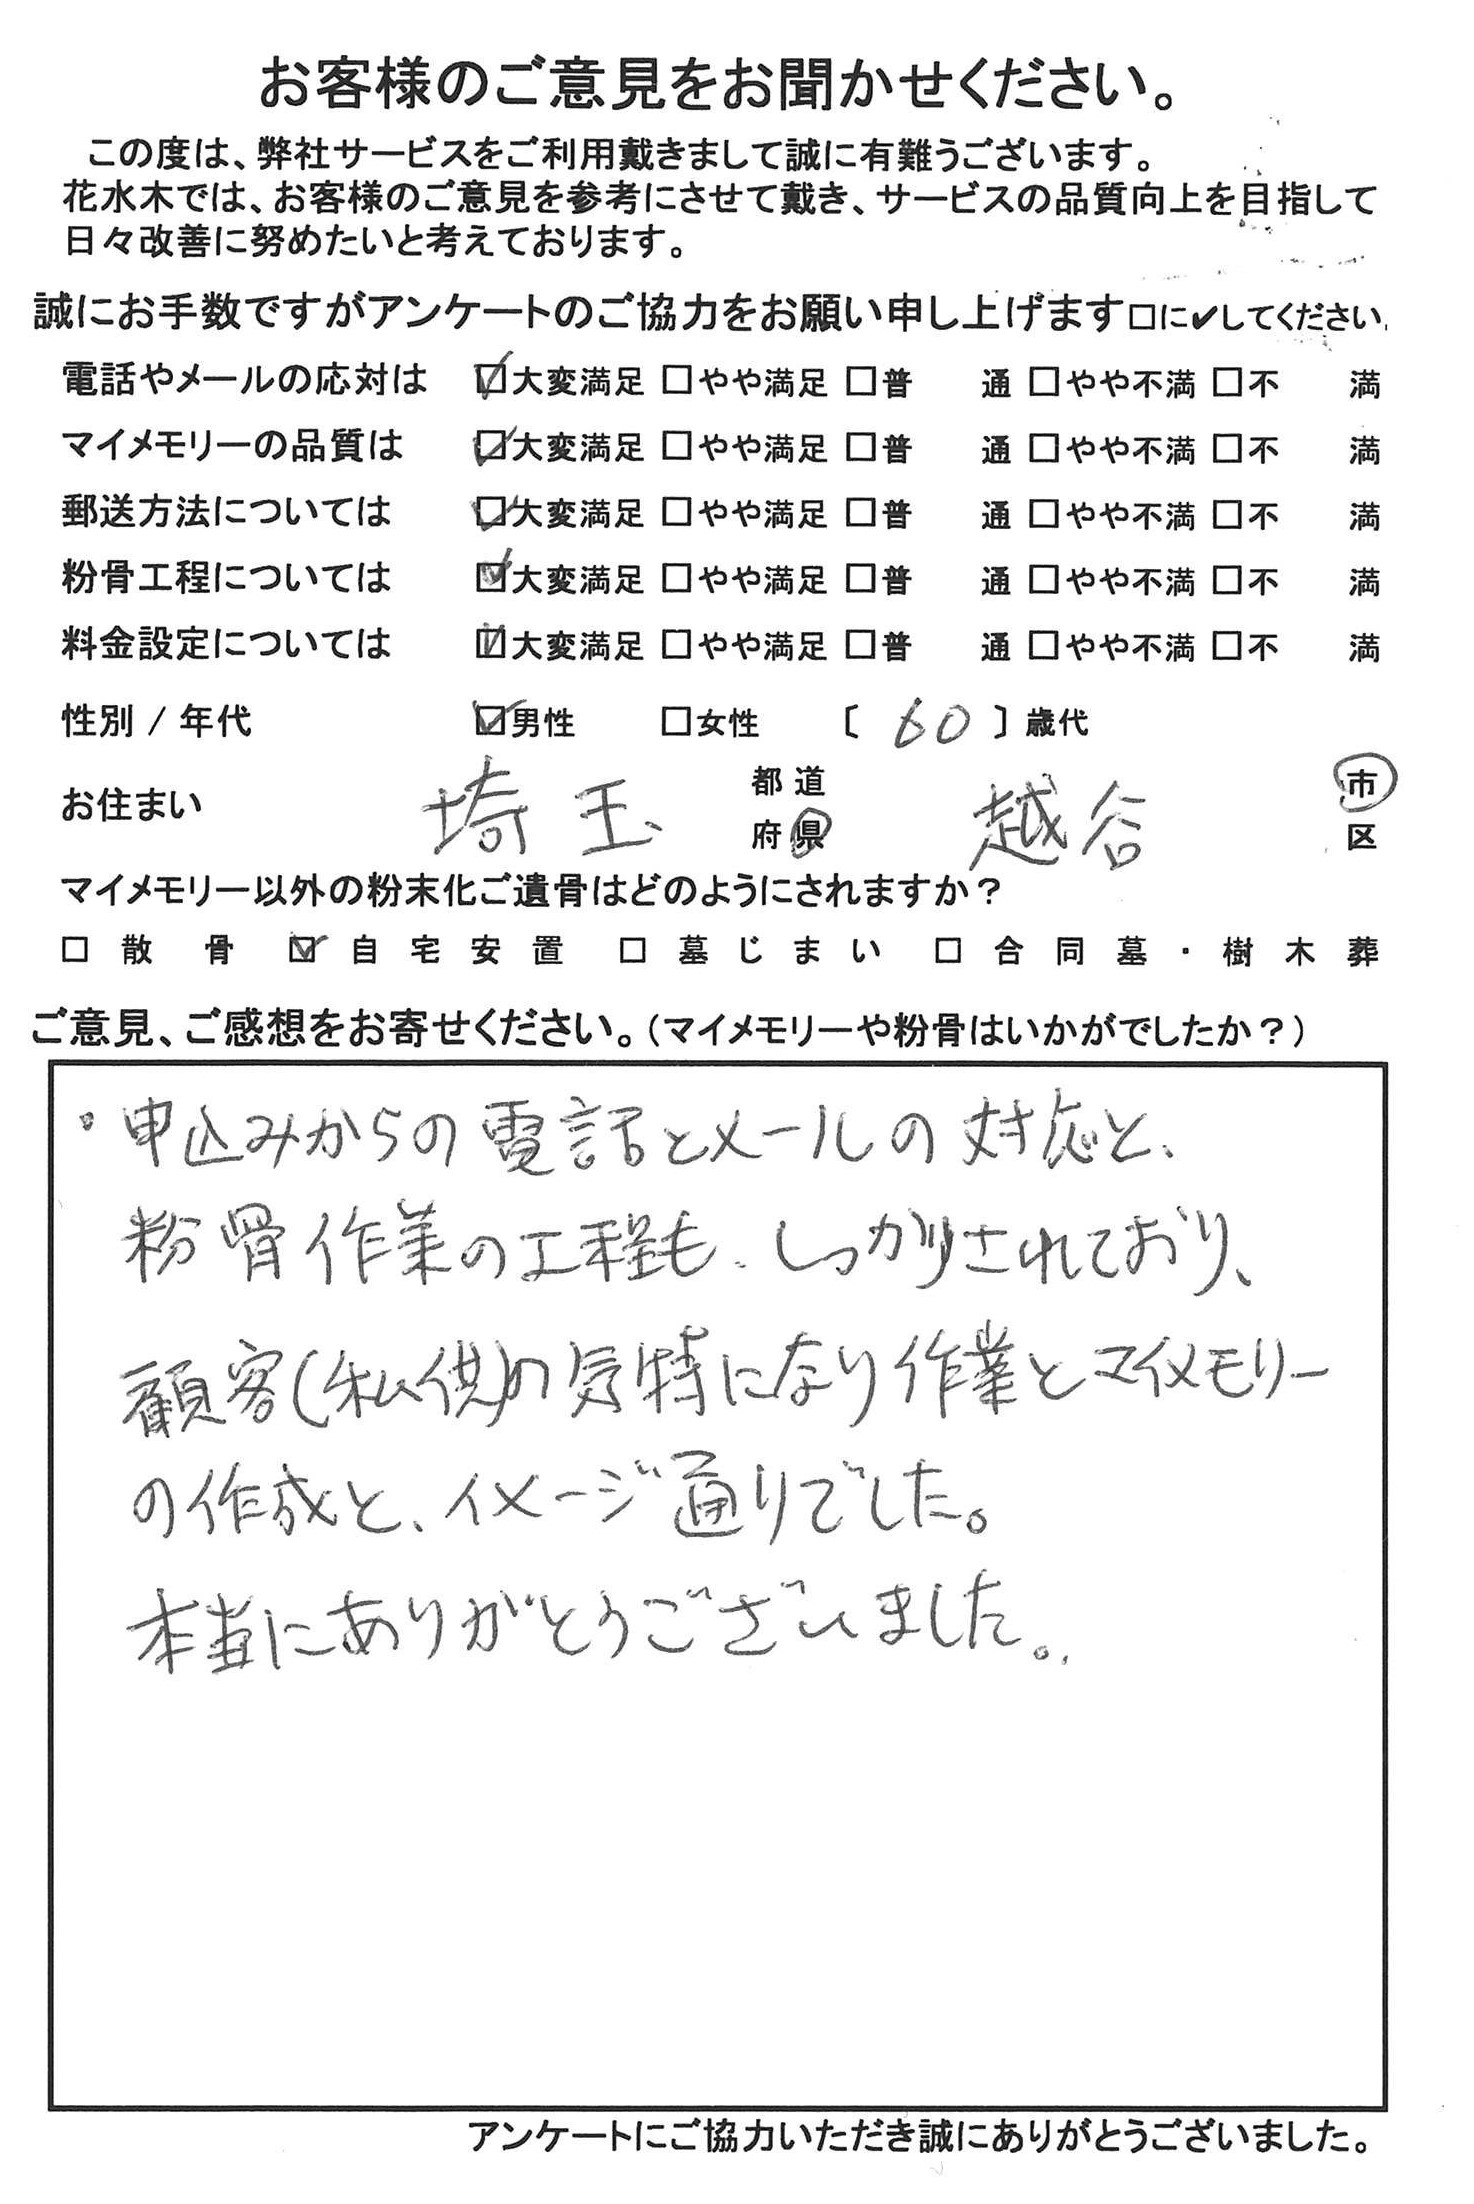 お客様のご意見をお聞かせください。
この度は、弊社サービスをご利用戴きまして誠に有難うございます。
花水木では、お客様のご意見を参考にさせて戴き、サービスの品質向上を目指して
日々改善に努めたいと考えております。
誠にお手数ですがアンケートのご協力をお願い申し上げます□に✔してください。
電話やメールの応対は ☑大変満足 □やや満足 □普 通 □やや不満 □不 満
マイメモリーの品質は ☑大変満足 □やや満足 □普 通 □やや不満 □不 満
郵送方法については ☑大変満足 □やや満足 □普 通 □やや不満 □不 満
粉骨工程については ☑大変満足 □やや満足 □普 通 □やや不満 □不 満
料金設定については ☑大変満足 □やや満足 □普 通 □やや不満 □不 満
性別 / 年代 ☑男性 □女性 〔 60 〕歳代
お住まい 埼玉 都道府県 越谷 市区
マイメモリー以外の粉末化ご遺骨はどのようにされますか？
□散骨 ☑自宅安置 □墓じまい □合同墓・樹木葬
ご意見、ご感想をお寄せください。（マイメモリーや粉骨はいかがでしたか？）
・申込みからの電話とメールの対応と、
粉骨作業の工程も、しっかりされており、
顧客(私供)の気持になり作業とマイメモリー
の作成と、イメージ通りでした。
本当にありがとうございました。
アンケートにご協力いただき誠にありがとうございました。